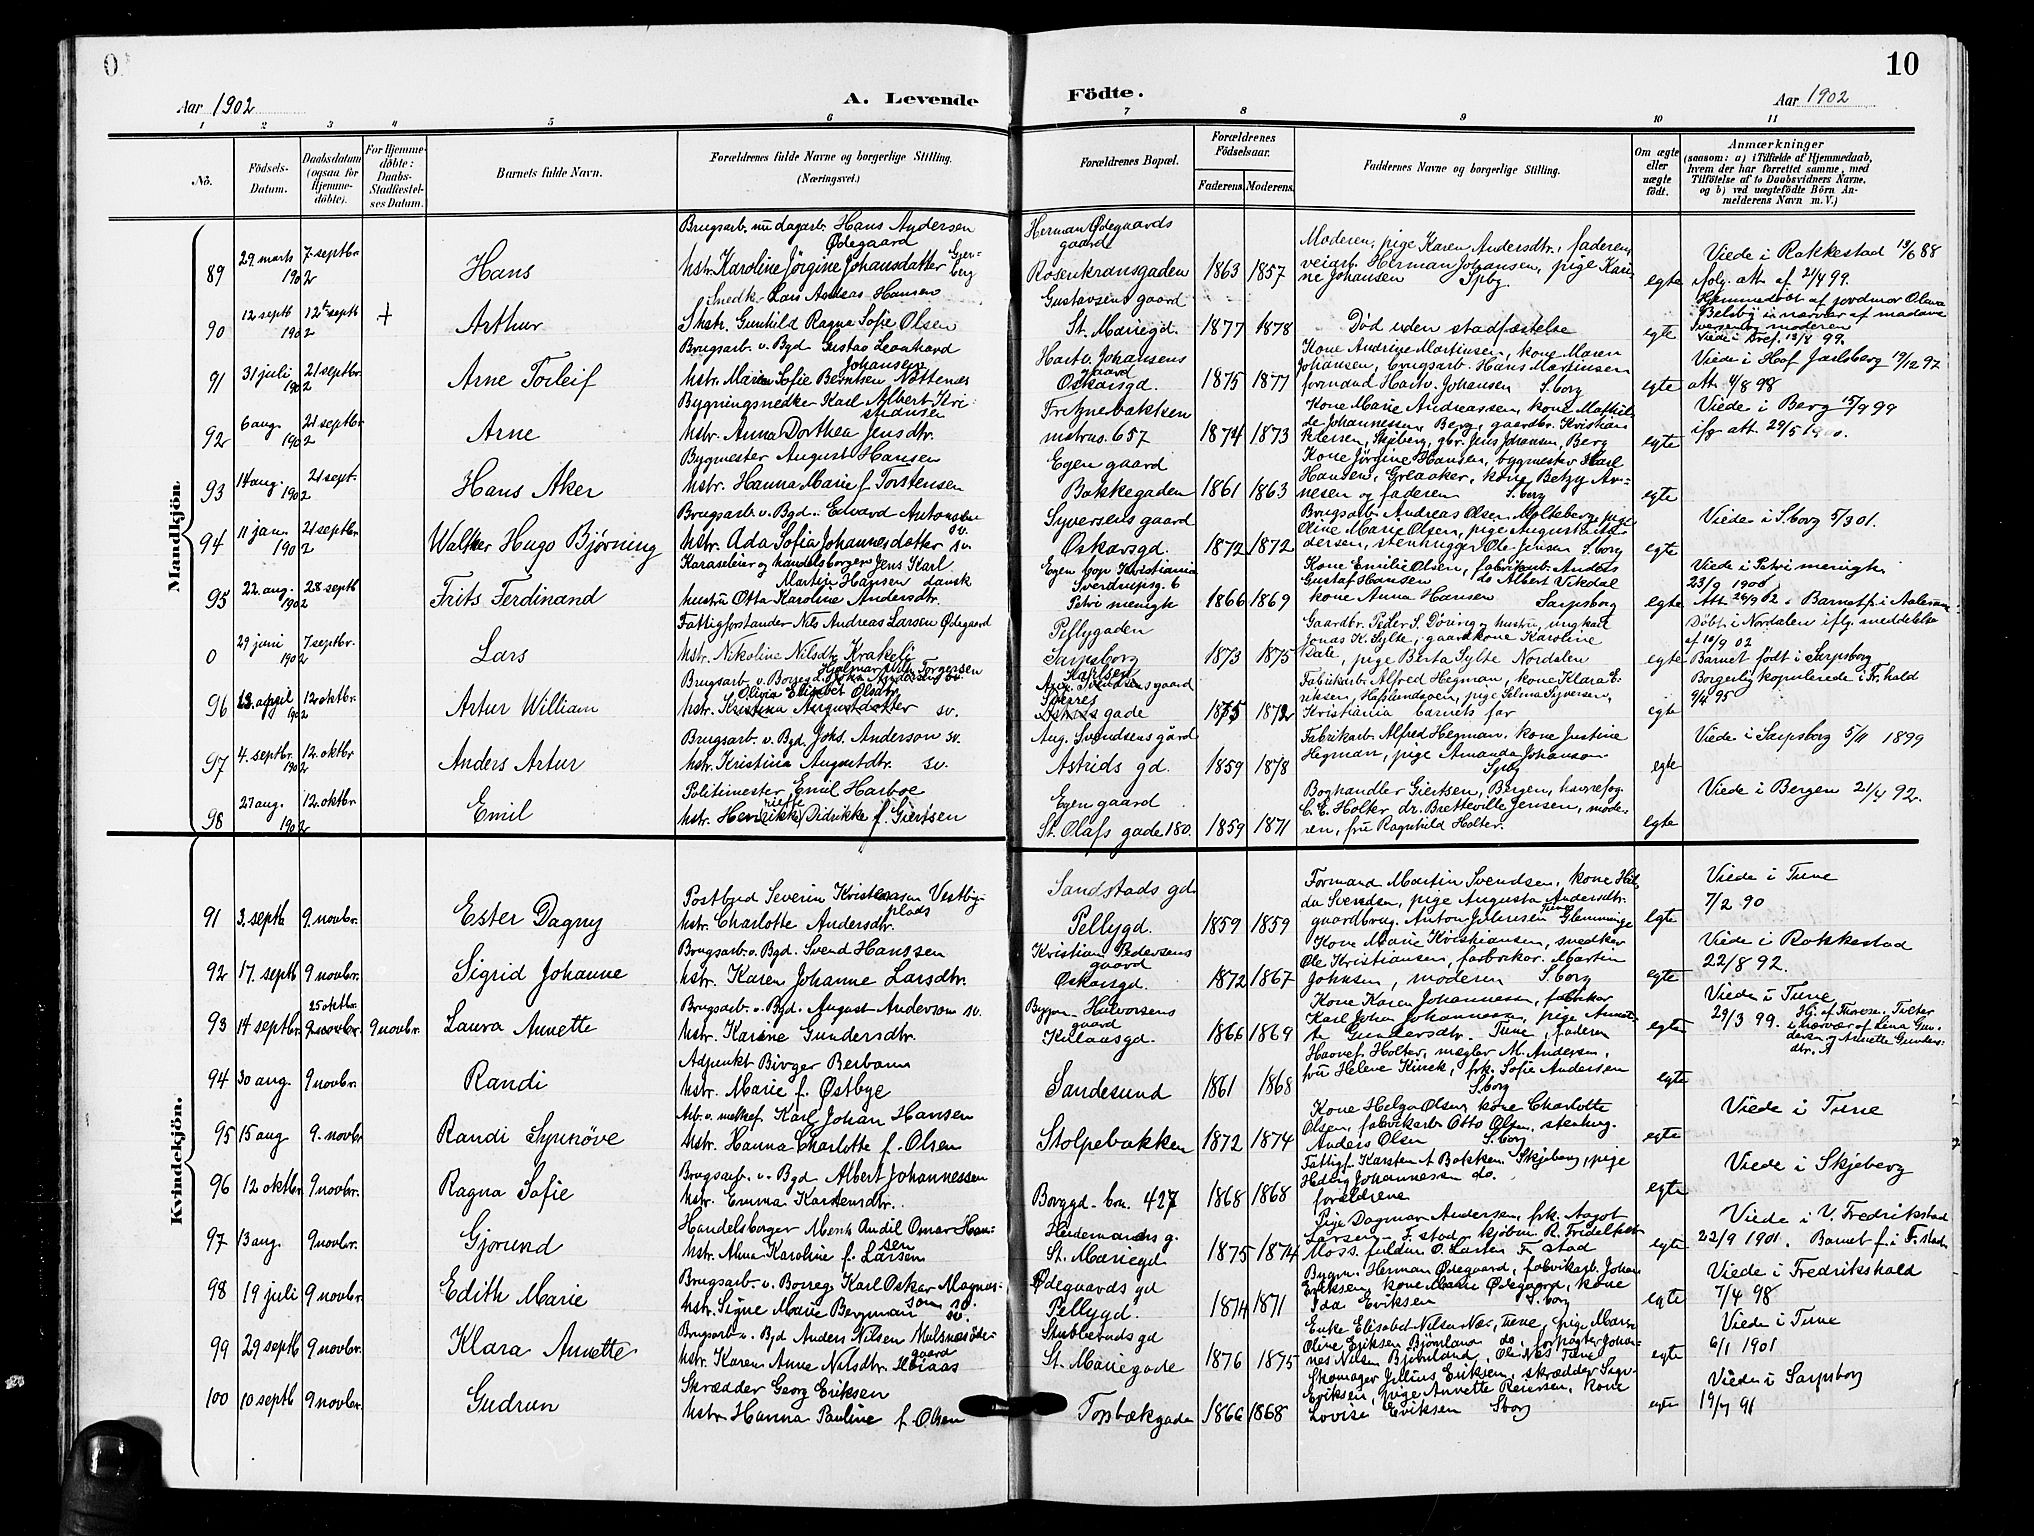 10
Aar 1902
A. Levende
Födte.
Aar 1902
1 2 3 4 5 6 7 8 9 10 11
No.
Födsels-
Datum.
Daabsdatum
(ogsaa for
Hjemme-
döbte).
For Hjemme-
döbte:
Daabs-
Stadfæstel-
ses Datum.
Barnets fulde Navn.
Forældrenes fulde Navne og borgerlige Stilling.
(Næringsvei.)
Forældrenes Bopæl.
Forældrenes
Födselsaar.
Faderens. Moderens.
Faddernes Navne og borgerlige Stilling.
Om ægte
eller
uægte
födt.
Anmærkninger
(saasom: a) i Tilfælde af Hjemmedaab,
hvem der har forrettet samme, med
Tilföielse af to Daabsvidners Navne,
og b) ved uægtefödte Börn An-
melderens Navn m. V.)
Mandkjön.
89 29. marts 1902 7. septbr. Hans
Brugsarb. nu dagarb. Hans Andersen
Ødegaard
hstr. Karoline Jörgine Johansdatter
Herman Ødegaards
gaard
Rosenkransgaden 1863 1857
Moderen, pige Karen Andersdtr., faderen,
veiarb. Herman Johansen, pige Kari-
ne Johansen Spbg.
egte
Viede i Rakkestad 13/6 88
ifølg. att. af 21/4 99.
90 12 septb 1902 12te septb + Arthur
Snedk. Lars Andreas Hansen
hstr. Gunhild Ragna Sofie Olsen
Gustavsens gaard
St. Mariegd. 1877 1878
Død uden stadfæstelse
egte
Hjemmedøbt af jordmor Olava
Belsby i nærvær af madame
Iversen og moderen
91 31 juli 1902 21 septbr. Arne Torleif
Brugsarb. v. Bgd Gustav Leonhard
Johansen
hstr. Maren Sofie Berntsen Nötternes
Hartv. Johansens
gaard
Oskarsgd. 1875 1877
Kone Andrine Martinsen, kone Maren
Johansen, brugsarb. Hans Martinsen
formand Hartv. Johansen S.borg
egte
Viede i Hof Jarlsberg 19/12 97
att. 4/8 98
92 6 aug. 1902 21 septbr Arne
Bygningsnedker Karl Albert Kri
stiansen
hstr. Anna Dorthea Jensdtr.
mtrno. 657 1874 1873
Kone Marie Andreassen, kone Mathil-
de Johannesen, Berg, gaardbr. Kristian
Skjeberg, gbr. Jens Johansen, Berg
egte
Viede i Berg 15/9 99
ifg. att. 29/5 1900.
93 14 aug. 1902 21 sept. Hans Aker
Bygmester August Hansen
hstr. Hanna Marie f. Torstensen
Egen gaard
Bakkegaden 1861 1863
Kone Jørgine Hansen, bygmester Karl
Hansen, Greaaker, kone Betzy Ar-
nesen og faderen S.borg
egte
94 11 jan. 1902 21 septbr Walther Hugo Bjørning
Brugsarb. v. Bgd. Edvard Antonsen
sv.
hstr. Ada Sofia Johannesdatter sv.
Syversens gaard
Oskarsgd. 1872 1872
Brugsarb. Andreas Olsen Molteberg, pige
Oline Marie Olsen, pige Augusta An-
dersen, stenhugger Ole Jensen S.borg
egte
Viede i S.borg 5/3 01.
95 22. aug. 1902 28 septb Frits Ferdinand
Karaseleier og handelsborger Jens Karl
Martin Hansen dansk
hustru Otta Karoline Andersdtr.
Egen bop Kristiania
Sverdrupsg. 6
Petri menigh 1866 1869
Kone Emilie Olsen, fabrikarb. Anders
Gustaf Hansen do Albert Vikdal
kone Anna Hansen Sarpsborg
egte
Viede i Petri menigh.
23/9 1900
Att. 26/9 02. Barnet f. i Aalesund
0 29 juni 1902 7 septbr. Lars
Fattigforstander Nils Andreas Larsen Ødegaard
hstr. Nikoline Nilsdtr. Krakeli
Pellygaden
Sarpsborg 1873 1875
Gaardbr. Peder S. Döving og hustru, ungkarl
Jonas K. Sylte, gaardkone Karoline
Dale, pige Berta Sylte Nordalen
egte
Döbt i Nordalen iflg. meddelelse
af 10/9 02
Barnet født i Sarpsborg
96 23. april 1902 12 oktbr. Artur William
Hjalmar Vilh. Torgersen
Olivia Elisabet Olsdtr.
hstr. Kristina Augustdatter sv.
Karlsen
Aug. Svendsens gaard
gade 1875 1872
Fabrikarb. Alfred Hegman, kone Klara E-
riksen, Hafslundsøen, pige Selma Syversen,
Kristiania barnets far
egte
Borgerlig kopulerede i Fr.hald
9/4 95
97 4. septbr. 1902 12. oktbr Anders Artur
Brugsarb. v. Bgd. Johs. Anderson sv.
hstr. Kristina Augustdtr. sv.
Aug. Svendsens gård
Astrids gd. 1859 1878
Fabrikarb. Alfred Hegman, kone Justine
Hegman, pige Amanda Johanson
Spbg
egte
Viede i Sarpsborg 5/11 1899
98 27 aug. 1902 12. oktbr. Emil
Politimester Emil Harboe
hstr. Henriette Didrikke f. Giertsen
Egen gaard
St. Olafs gade 180. 1859 1871
Boghandler Giertsen, Bergen, havnefog.
C. E. Holter, dr. Bretteville Jensen, mode-
ren, fru Ragnhild Holter.
egte
Viede i Bergen 21/4 92.
Kvindekjön.
91 3. septb 9. novbr. Ester Dagny
Postbud Severin Kristensen Vestby-
plads
hstr. Charlotte Andersdtr.
Sandstads gd.
Pellygd. 1859 1859
Formand Martin Svendsen, kone Hil-
da Svendsen, pige Augusta Andersdtr.
Tune
gaardbrug. Anton Julensen Glemminge
egte
Viede i Tune
7/2 90
92 17. septb 9 novbr. Sigrid Johanne
Brugsarb. v. Bgd. Svend Hanssen
hstr. Karen Johanne Larsdtr.
Kristian Pedersens
gaard
Oskarsgd. 1872 1867
Kone Marie Kristiansen, snedker
Ole Kristiansen, fabrikar. Martin
Johnsen, moderen S.borg
egte
Viede i Rakkestad
22/8 92.
93 14 septbr. 25 oktbr. 9 novbr. 9 novbr. Laura Annette
Brugsarb. v. Bgd. August Anderson sv.
hstr. Karine Gundersdtr.
Bygm Halvorsens
gaard
Kilaasgd. 1866 1869
Kone Karen Johannesen, fabrikar
Karl Johan Johannesen, pige Annet-
te Gundersdtr. Tune, faderen
egte
Viede i Tune
29/3 99.
i nærvær af Lina Gun-
dersen og Annette Gunders-
dtr.
94 30 aug. 9 novbr. Randi
Adjunkt Birger Berbom
hstr. Marie f. Østbye
Sandesund 1861 1868
Havnef. Holter, megler M. Andersen,
fru Helene Kinck, frk. Sofie Andersen
S.borg
egte
95 15 aug 9. novbr. Randi Synnöve
Arb. v. melkef. Karl Johan Hansen
hstr. Hanna Charlotte f. Olsen
Stolpebakken 1872 1874
Kone Helga Olsen, kone Charlotte
Olsen, fabrikarb. Otto Olsen, stenhug.
Anders Olsen S.borg
egte
Viede i Tune
96 12 oktbr. 9 novbr. Ragna Sofie
Brugsarb. v. Bgd Albert Johannessen
hstr. Emma Karstensdtr.
Borggd. bno. 427 1868 1868
Fattigf. Karsten A Bakken, Skjeberg, pige
Hedvig Johannesen do.
forældrene
egte
Viede i Skjeberg
97 13 aug. 9 novbr. Gjørund
Handelsborger Ment Andil Omar Han-
sen
hstr. Alma Karoline f. Larsen
St. Mariegd 1875 1874
Pige Dagmar Andersen, frk. Aagot
Larsen F. stad kjøbm.
Moss. O. Larsen Fr. stad
egte
Viede i V. Fredrikstad
22/9 1901. Barnet f. i F. stad
98 19 juli 9 novbr. Edith Marie
Brugsarb. v. Borreg. Karl Oskar Magnus-
son sv.
hstr. Signe Marie Bergman sv.
Ødegaards gd
Pellygd. 1874 1871
Bygm. Herman Ødegaard, fabrikarb. Johan
Eriksen, kone Marie Ødegaard, kone
Ida Eriksen S.borg
egte
Viede i Fredrikshald
7/4 98
99 29 septb 9 novbr. Klara Annette
Brugsarb. v. Bgd Anders Nilsen
gaard
hstr. Karen Anne Nilsdtr.
Stubberuds gd
St. Mariegade 1876 1875
Enke Elisabet Nilsen Nes, Tune, pige Maren
Oline Eriksen Björnland do, forpagter Johan-
nes Nilsen Björnland, Ole Nes Tune
egte
Viede i Tune
6/1 1901
100 10 septb 9 novbr. Gudrun
Skrædder Georg Eriksen
hstr. Hanna Pauline f. Olsen
Torsbækgaden 1866 1868
Skomager Julius Eriksen, skrædder Sigv.
Eriksen, pige Annette Reiersen, kone
Lovise Eriksen Sborg
egte
Viede i Sarpsborg
19/4 91